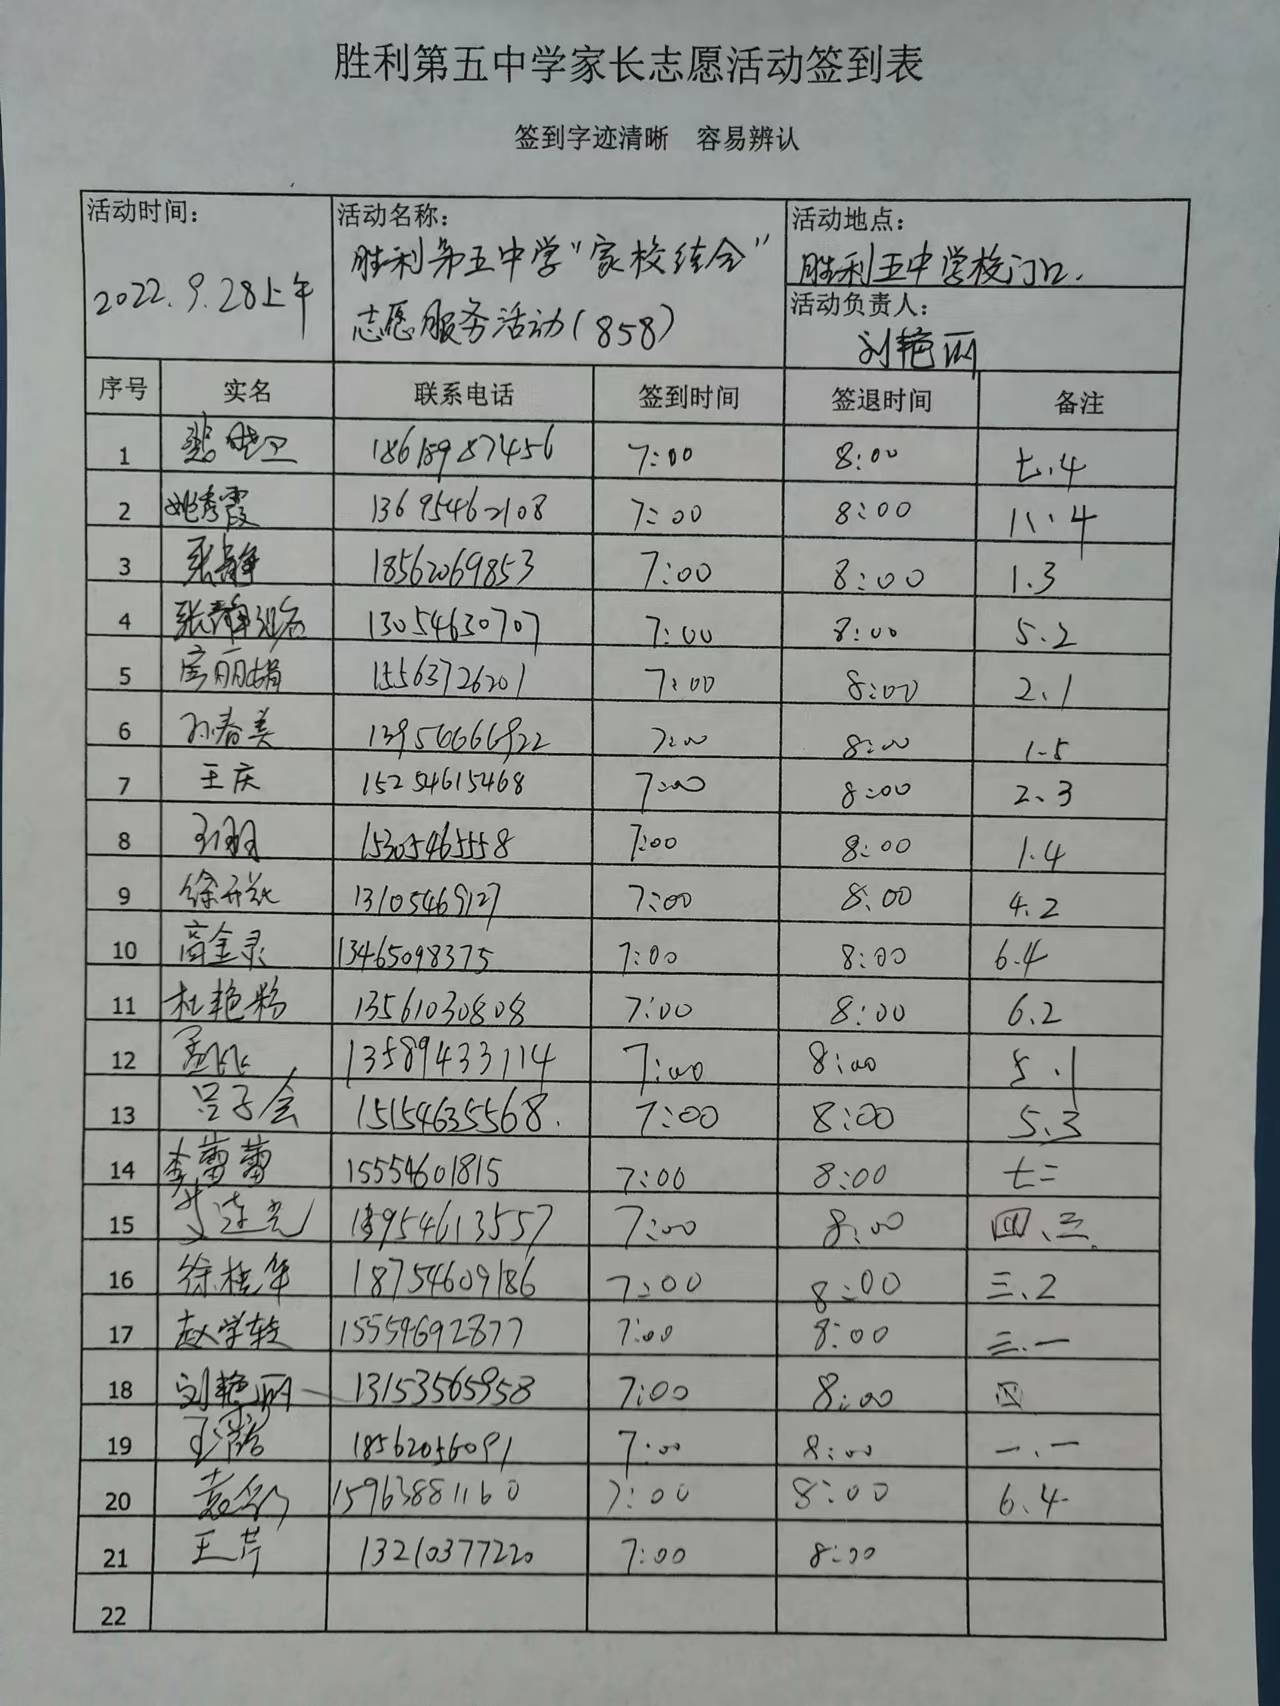 胜利第五中学家长志愿活动签到表
签到字迹清晰 容易辨认
活动时间: 活动名称: 活动地点:
2022.9.28上午 胜利第五中学"家校结合" 胜利五中学校门口.
志愿服务活动(858) 活动负责人:
刘艳丽
序号 实名 联系电话 签到时间 签退时间 备注
1 18618987456 7:00 8:00 七.4
2 姚秀霞 13695462108 7:00 8:00 八.4
3 张静 18562069853 7:00 8:00 1.3
4 张静 13054630707 7:00 8:00 5.2
5 房丽娟 15563726201 7:00 8:00 2.1
6 孙春美 13954666922 7:00 8:00 1.5
7 王庆 15254615468 7:00 8:00 2.3
8 15305465558 7:00 8:00 1.4
9 徐 13105469127 7:00 8:00 4.2
10 商金录 13465098375 7:00 8:00 6.4
11 杜艳粉 13561030808 7:00 8:00 6.2
12 孟 13589433114 7:00 8:00 5.1
13 吕子会 15154635568. 7:00 8:00 5.3
14 李蕾蕾 15554601815 7:00 8:00 七二
15 连光 18954613557 7:00 8:00 四、三.
16 徐桂华 18754609186 7:00 8:00 三.2
17 赵学 15554692877 7:00 8:00 三.一
18 刘艳丽 13153565958 7:00 8:00 四
19 王 18562056091 7:00 8:00 一.一
20 袁 15963881160 7:00 8:00 6.4
21 王芹 13210377220 7:00 8:00
22